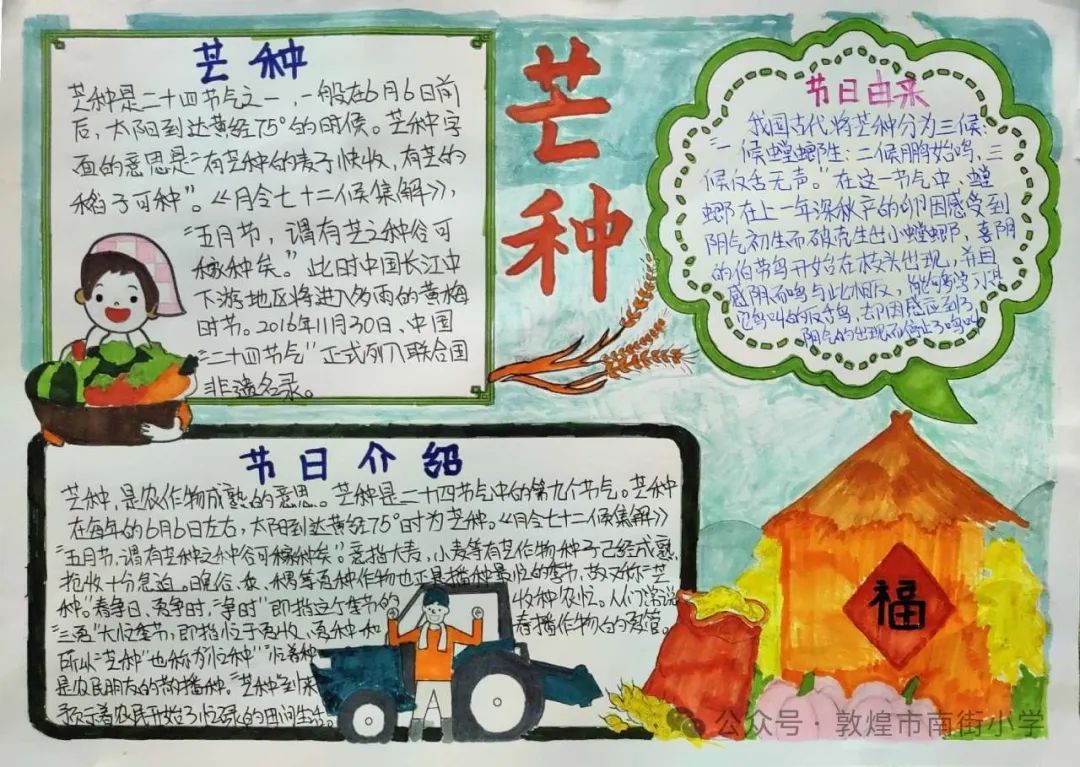 芒种
芒种是二十四节气之一，一般在6月6日前
后，太阳到达黄经75°的时候。芒种字
面的意思是“有芒种的麦子快收，有芒的
稻子可种”。《月令七十二候集解》，
“五月节，谓有芒之种谷可
稼种矣。”此时中国长江中
下游地区将进入多雨的黄梅
时节。2016年11月30日、中国
“二十四节气”正式列入联合国
非遗名录。
芒种
节日由来
我国古代将芒种分为三候：
“一候螳螂生；二候鹏始鸣，三
候反舌无声。”在这一节气中，螳
螂在上一年深秋产的卵因感受到
阴气初生而破壳生出小螳螂，喜阴
的伯劳鸟开始在枝头出现，并且
感阴而鸣与此相反，能够学习其
它鸟叫的反舌鸟，却因感应到了
阴气的出现而停止了鸣叫
节日介绍
芒种，是农作物成熟的意思。芒种是二十四节气中的第九个节气。芒种
在每年的6月6日左右，太阳到达黄经75°时为芒种。《月令七十二候集解》
“五月节，谓有芒种之种谷可稼种矣”。意指大麦，小麦等有芒作物种子已经成熟，
抢收十分急迫。晚谷、黍、稷等夏种作物也正是播种最忙的季节，故又称“芒
种”。春争日、夏争时，“争时”即指这个季节的收种农忙。人们常说
“三夏”大忙季节，即指忙于夏收、夏种和春播作物的夏管。
所以“芒种”也称为“忙种”“忙着种
是农民朋友的播种。“芒种”到来
预示着农民开始了忙碌的田间生活
福
公众号·敦煌市南街小学